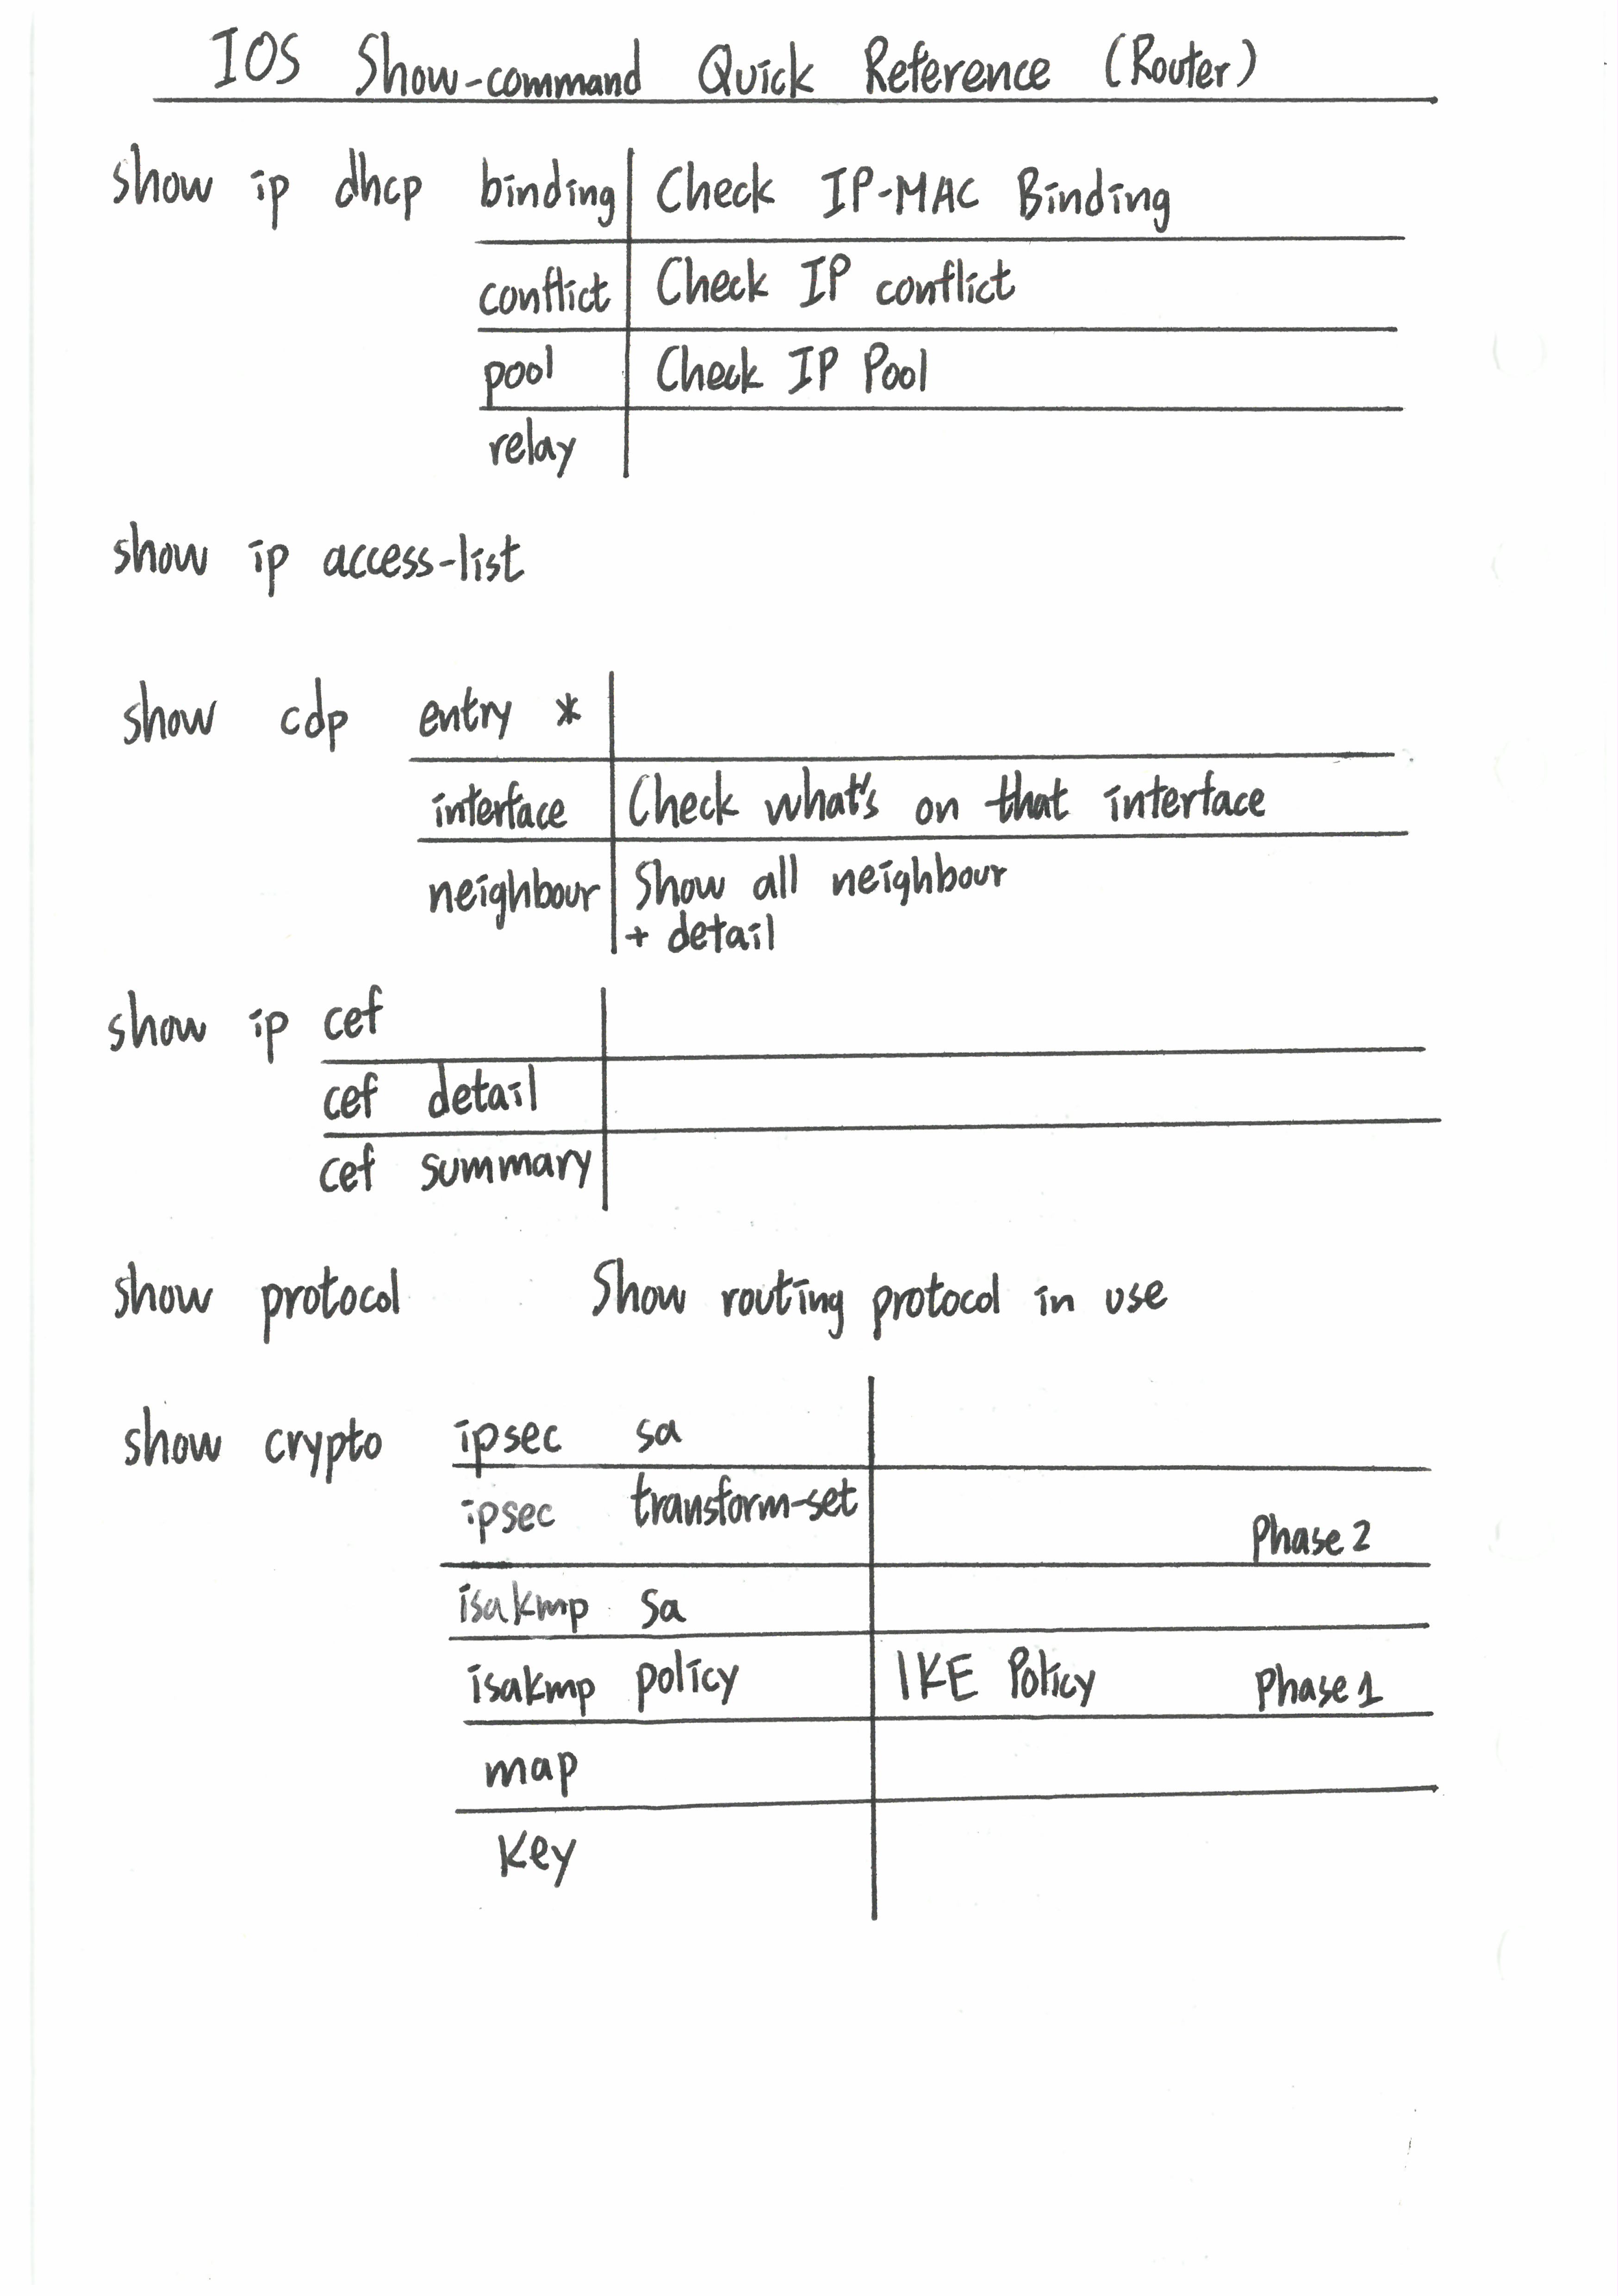 IOS Show-command Quick Reference (Router)
show ip dhcp binding Check IP-MAC Binding
conflict Check IP conflict
pool Check IP Pool
relay
show ip access-list
show cdp entry *
interface Check what's on that interface
neighbour Show all neighbour
+ detail
show ip cef
cef detail
cef summary
show protocol Show routing protocol in use
show crypto ipsec sa
ipsec transform-set Phase 2
isakmp sa
isakmp policy IKE Policy Phase 1
map
Key